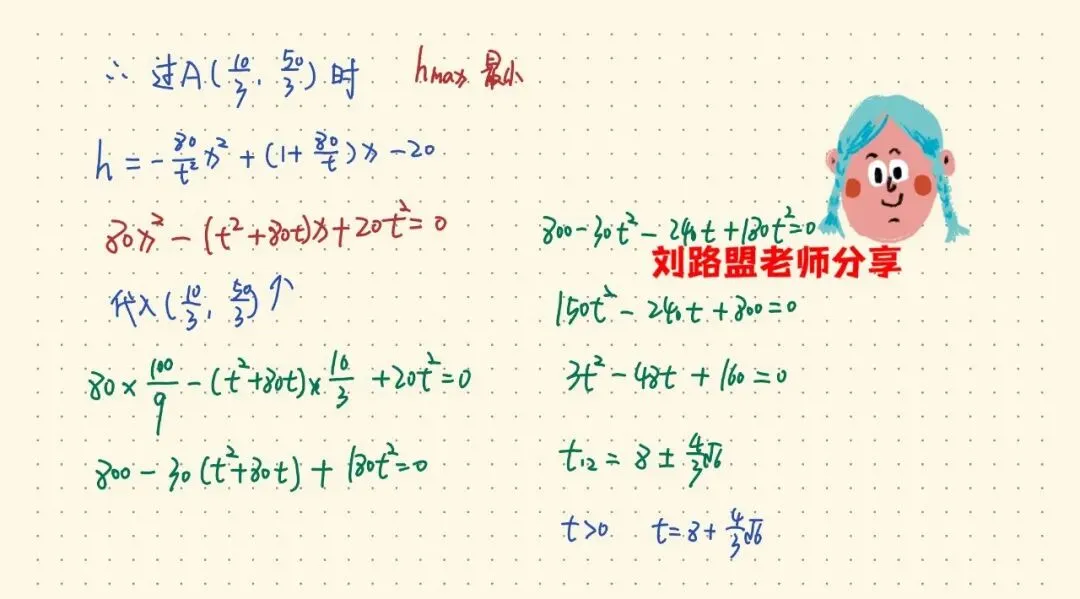 ∴ 过A(10/3, 50/3)时 hmax 最小
h = -80/t² x² + (1+80/t)x - 20
80x² - (t²+80t)x + 20t² = 0
代入(10/3, 50/3)个
80 × 100/9 - (t²+80t)× 10/3 + 20t² = 0
800 - 30(t²+80t) + 180t² = 0
800 - 30t² - 240t + 180t² = 0
刘路盟老师分享
150t² - 240t + 800 = 0
3t² - 48t + 160 = 0
t₁₂ = 8 ± 4/3√6
t>0 t = 8 + 4/3√6